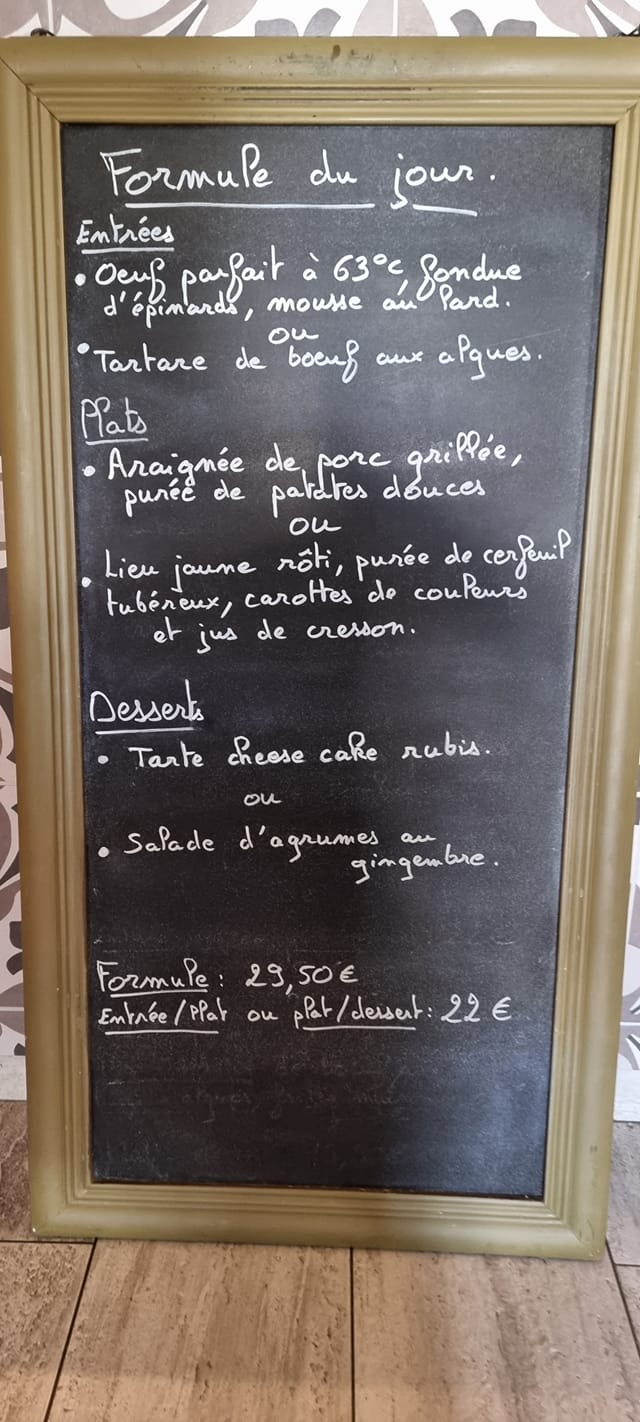 Formule du jour.
Entrées
• Oeuf parfait à 63°c, fondue
d'épinards, mousse au lard.
ou
• Tartare de boeuf aux algues.
Plats
• Araignée de porc grillée,
purée de patates douces
ou
• Lieu jaune rôti, purée de cerfeuil
tubéreux, carottes de couleurs
et jus de cresson.
Desserts
• Tarte cheese cake rubis.
ou
• Salade d'agrumes au
gingembre.
Formule : 29,50 €
Entrée/Plat ou plat/dessert : 22 €